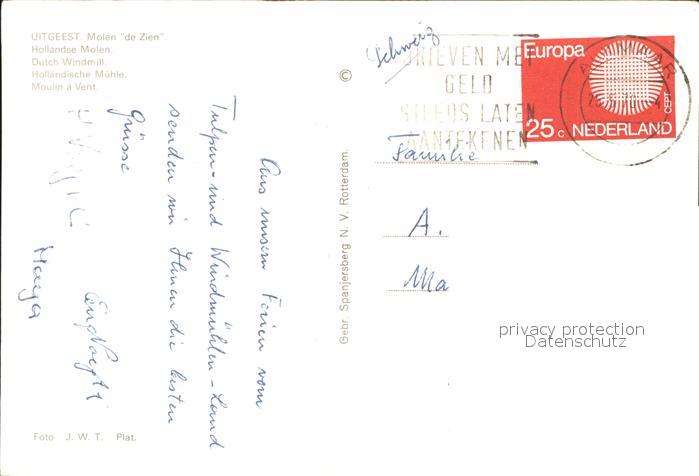 UITGEEST. Molen "de Zien".
Hollandse Molen.
Dutch-Windmill.
Holländische Mühle.
Moulin à Vent.
Aus unsern Ferien vom
Tulpen- und Windmühlen-Land
senden wir Ihnen die besten
Grüsse
Foto J. W. T. Plat.
©
Gebr. Spanjersberg N. V. Rotterdam.
Schweiz
BRIEVEN MET
GELD
STEEDS LATEN
AANTEKENEN
Europa
CEPT
25 c NEDERLAND
Familie
A.
Ma
privacy protection
Datenschutz